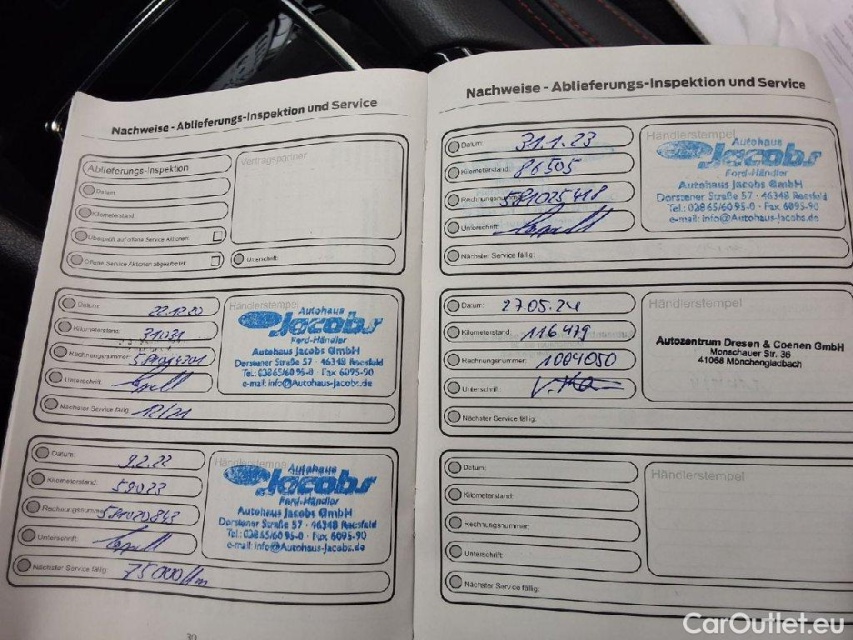 Nachweise - Ablieferungs-Inspektion und Service
Ablieferungs-Inspektion
Vertragspartner
Datum:
Kilometerstand:
Überprüft auf offene Service Aktionen
Offene Service Aktionen abgearbeitet
Unterschrift:
Datum: 22.12.20
Kilometerstand: 31031
Rechnungsnummer:
Unterschrift:
Nächster Service fällig: 12/21
Händlerstempel
Autohaus
Jacobs
Ford-Händler
Autohaus Jacobs GmbH
Dorstener Straße 57 · 46348 Raesfeld
Tel.: 02865/6095-0 · Fax 6095-90
e-mail: info@Autohaus-Jacobs.de
Datum: 9.2.22
Kilometerstand: 59023
Rechnungsnummer: 581020843
Unterschrift:
Nächster Service fällig: 75000 km
Händlerstempel
Autohaus
Jacobs
Ford-Händler
Autohaus Jacobs GmbH
Dorstener Straße 57 · 46348 Raesfeld
Tel.: 02865/6095-0 · Fax 6095-90
e-mail: info@Autohaus-Jacobs.de
30
Nachweise - Ablieferungs-Inspektion und Service
Datum: 31.1.23
Kilometerstand: 86505
Rechnungsnummer: 581025418
Unterschrift:
Nächster Service fällig:
Händlerstempel
Autohaus
Jacobs
Ford-Händler
Autohaus Jacobs GmbH
Dorstener Straße 57 · 46348 Raesfeld
Tel.: 02865/6095-0 · Fax 6095-90
e-mail: info@Autohaus-Jacobs.de
Datum: 27.05.24
Kilometerstand: 116479
Rechnungsnummer: 1004050
Unterschrift:
Nächster Service fällig:
Händlerstempel
Autozentrum Dresen & Coenen GmbH
Monschauer Str. 36
41068 Mönchengladbach
Datum:
Kilometerstand:
Rechnungsnummer:
Unterschrift:
Nächster Service fällig:
Händlerstempel
CarOutlet.eu